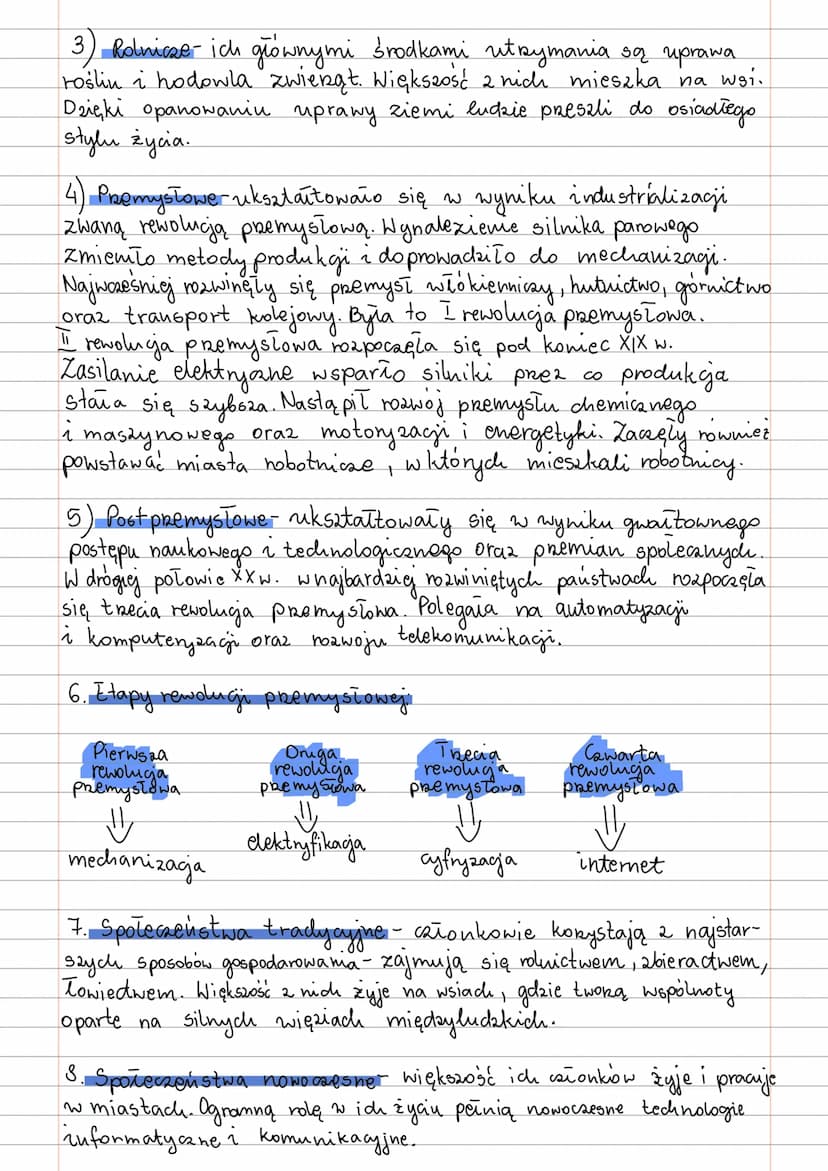 3) Rolnicze - ich głównymi środkami utrzymania są uprawa
roślin i hodowla zwierząt. Większość z nich mieszka na wsi.
Dzięki opanowaniu uprawy ziemi ludzie przeszli do osiadłego
stylu życia.
4) Przemysłowe - ukształtowało się w wyniku industrializacji
zwaną rewolucją przemysłową. Wynalezienie silnika parowego
zmieniło metody produkcji i doprowadziło do mechanizacji.
Najwcześniej rozwinęły się przemysł włókienniczy, hutnictwo, górnictwo
oraz transport kolejowy. Była to I rewolucja przemysłowa.
II rewolucja przemysłowa rozpoczęła się pod koniec XIX w.
Zasilanie elektryczne wsparło silniki przez co produkcja
stała się szybsza. Nastąpił rozwój przemysłu chemicznego
i maszynowego oraz motoryzacji i energetyki. Zaczęły również
powstawać miasta robotnicze, w których mieszkali robotnicy.
5) Postprzemysłowe - ukształtowały się w wyniku gwałtownego
postępu naukowego i technologicznego oraz przemian społecznych.
W drógiej połowie XX w. w najbardziej rozwiniętych państwach rozpoczęła
się trzecia rewolucja przemysłowa. Polegała na automatyzacji
i komputeryzacji oraz rozwoju telekomunikacji.
6. Etapy rewolucji przemysłowej:
Pierwsza rewolucja przemysłowa
⇓
mechanizacja
Druga rewolucja przemysłowa
⇓
elektryfikacja
Trzecia rewolucja przemysłowa
⇓
cyfryzacja
Czwarta rewolucja przemysłowa
⇓
internet
7. Społeczeństwa tradycyjne - członkowie korzystają z najstar-
szych sposobów gospodarowania - zajmują się rolnictwem, zbieractwem,
łowiectwem. Większość z nich żyje na wsiach, gdzie tworzą wspólnoty
oparte na silnych więziach międzyludzkich.
8. Społeczeństwa nowoczesne - większość ich członków żyje i pracuje
w miastach. Ogromną rolę w ich życiu pełnią nowoczesne technologie
informatyczne i komunikacyjne.